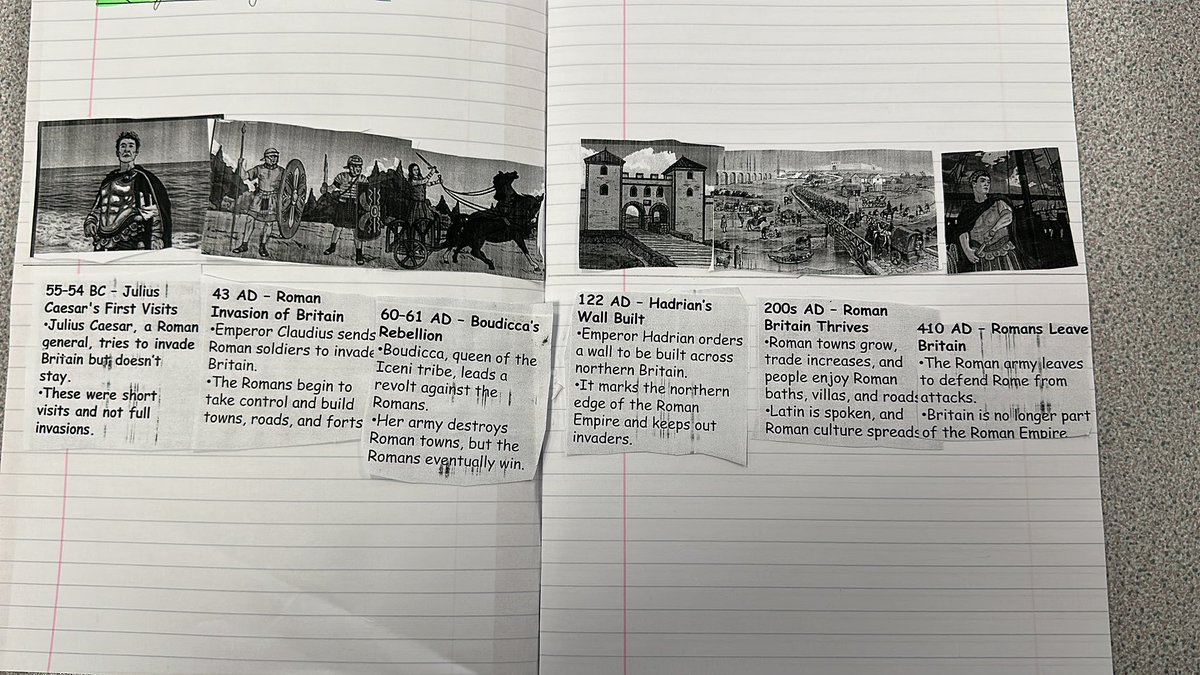 55-54 BC – Julius
Caesar's First Visits
•Julius Caesar, a Roman
general, tries to invade
Britain but doesn't
stay.
•These were short
visits and not full
invasions.
43 AD – Roman
Invasion of Britain
•Emperor Claudius sends
Roman soldiers to invade
Britain.
•The Romans begin to
take control and build
towns, roads, and forts
60-61 AD – Boudicca's
Rebellion
•Boudicca, queen of the
Iceni tribe, leads a
revolt against the
Romans.
•Her army destroys
Roman towns, but the
Romans eventually win.
122 AD – Hadrian's
Wall Built
•Emperor Hadrian orders
a wall to be built across
northern Britain.
•It marks the northern
edge of the Roman
Empire and keeps out
invaders.
200s AD – Roman
Britain Thrives
•Roman towns grow,
trade increases, and
people enjoy Roman
baths, villas, and roads
•Latin is spoken, and
Roman culture spreads
410 AD – Romans Leave
Britain
•The Roman army leaves
to defend Rome from
attacks.
•Britain is no longer part
of the Roman Empire